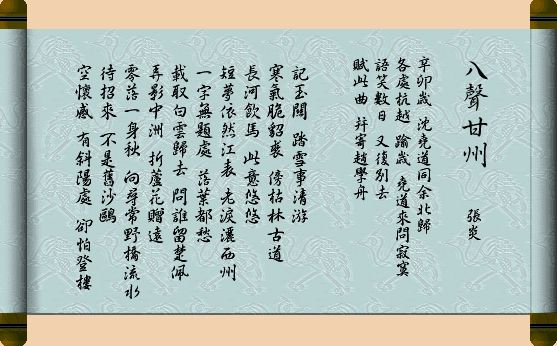 八聲甘州
張炎
辛卯歲 沈堯道同余北歸
各處杭越 踰歲 堯道來問寂寞
語笑數日 又復別去
賦此曲 并寄趙學舟
記玉關 踏雪事清游
寒氣脆貂裘 傍枯林古道
長河飲馬 此意悠悠
短夢依然江表 老淚灑西州
一字無題處 落葉都愁
載取白雲歸去 問誰留楚佩
弄影中洲 折蘆花贈遠
零落一身秋 向尋常野橋流水
待招來 不是舊沙鷗
空懷感 有斜陽處 卻怕登樓